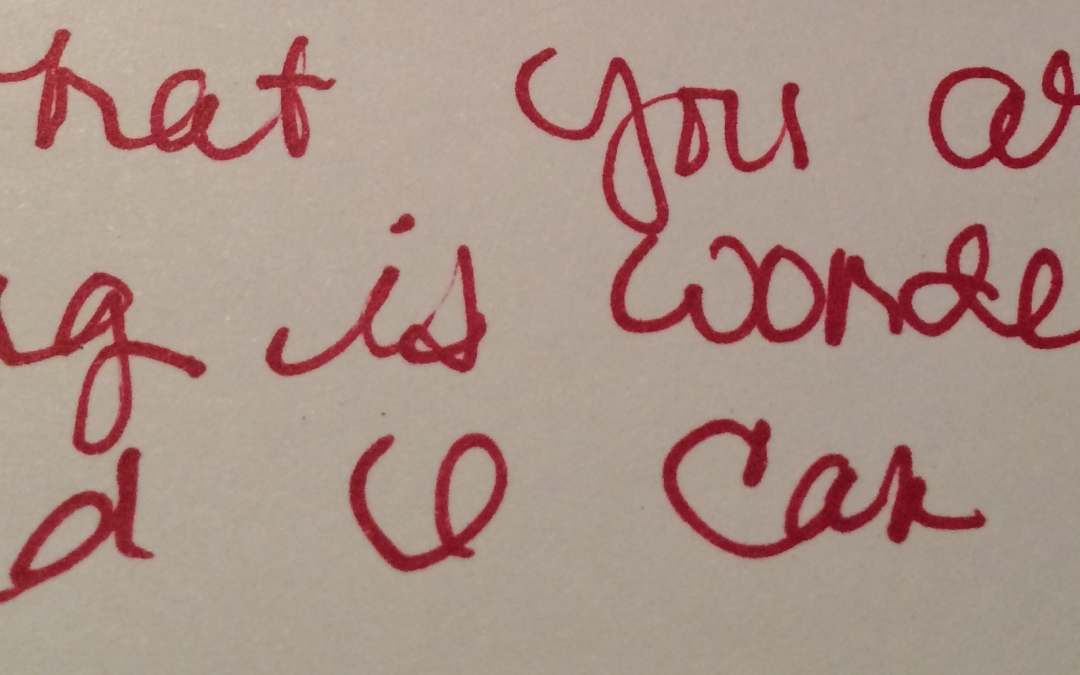 hat you a
g is wonde
d I can